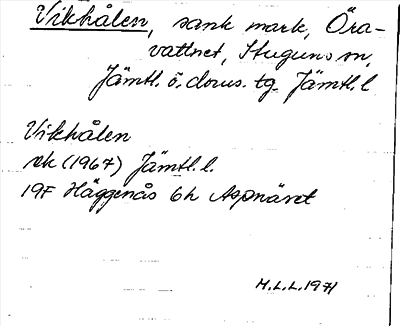 Vikhålen, sank mark, Öra-
vattnet, Stuguns sn,
Jämtl. ö. doms. tg. Jämtl. l
Vikhålen
ek (1967) Jämtl. l.
19F Häggenås 6h Aspnäset
M.L.L. 1971